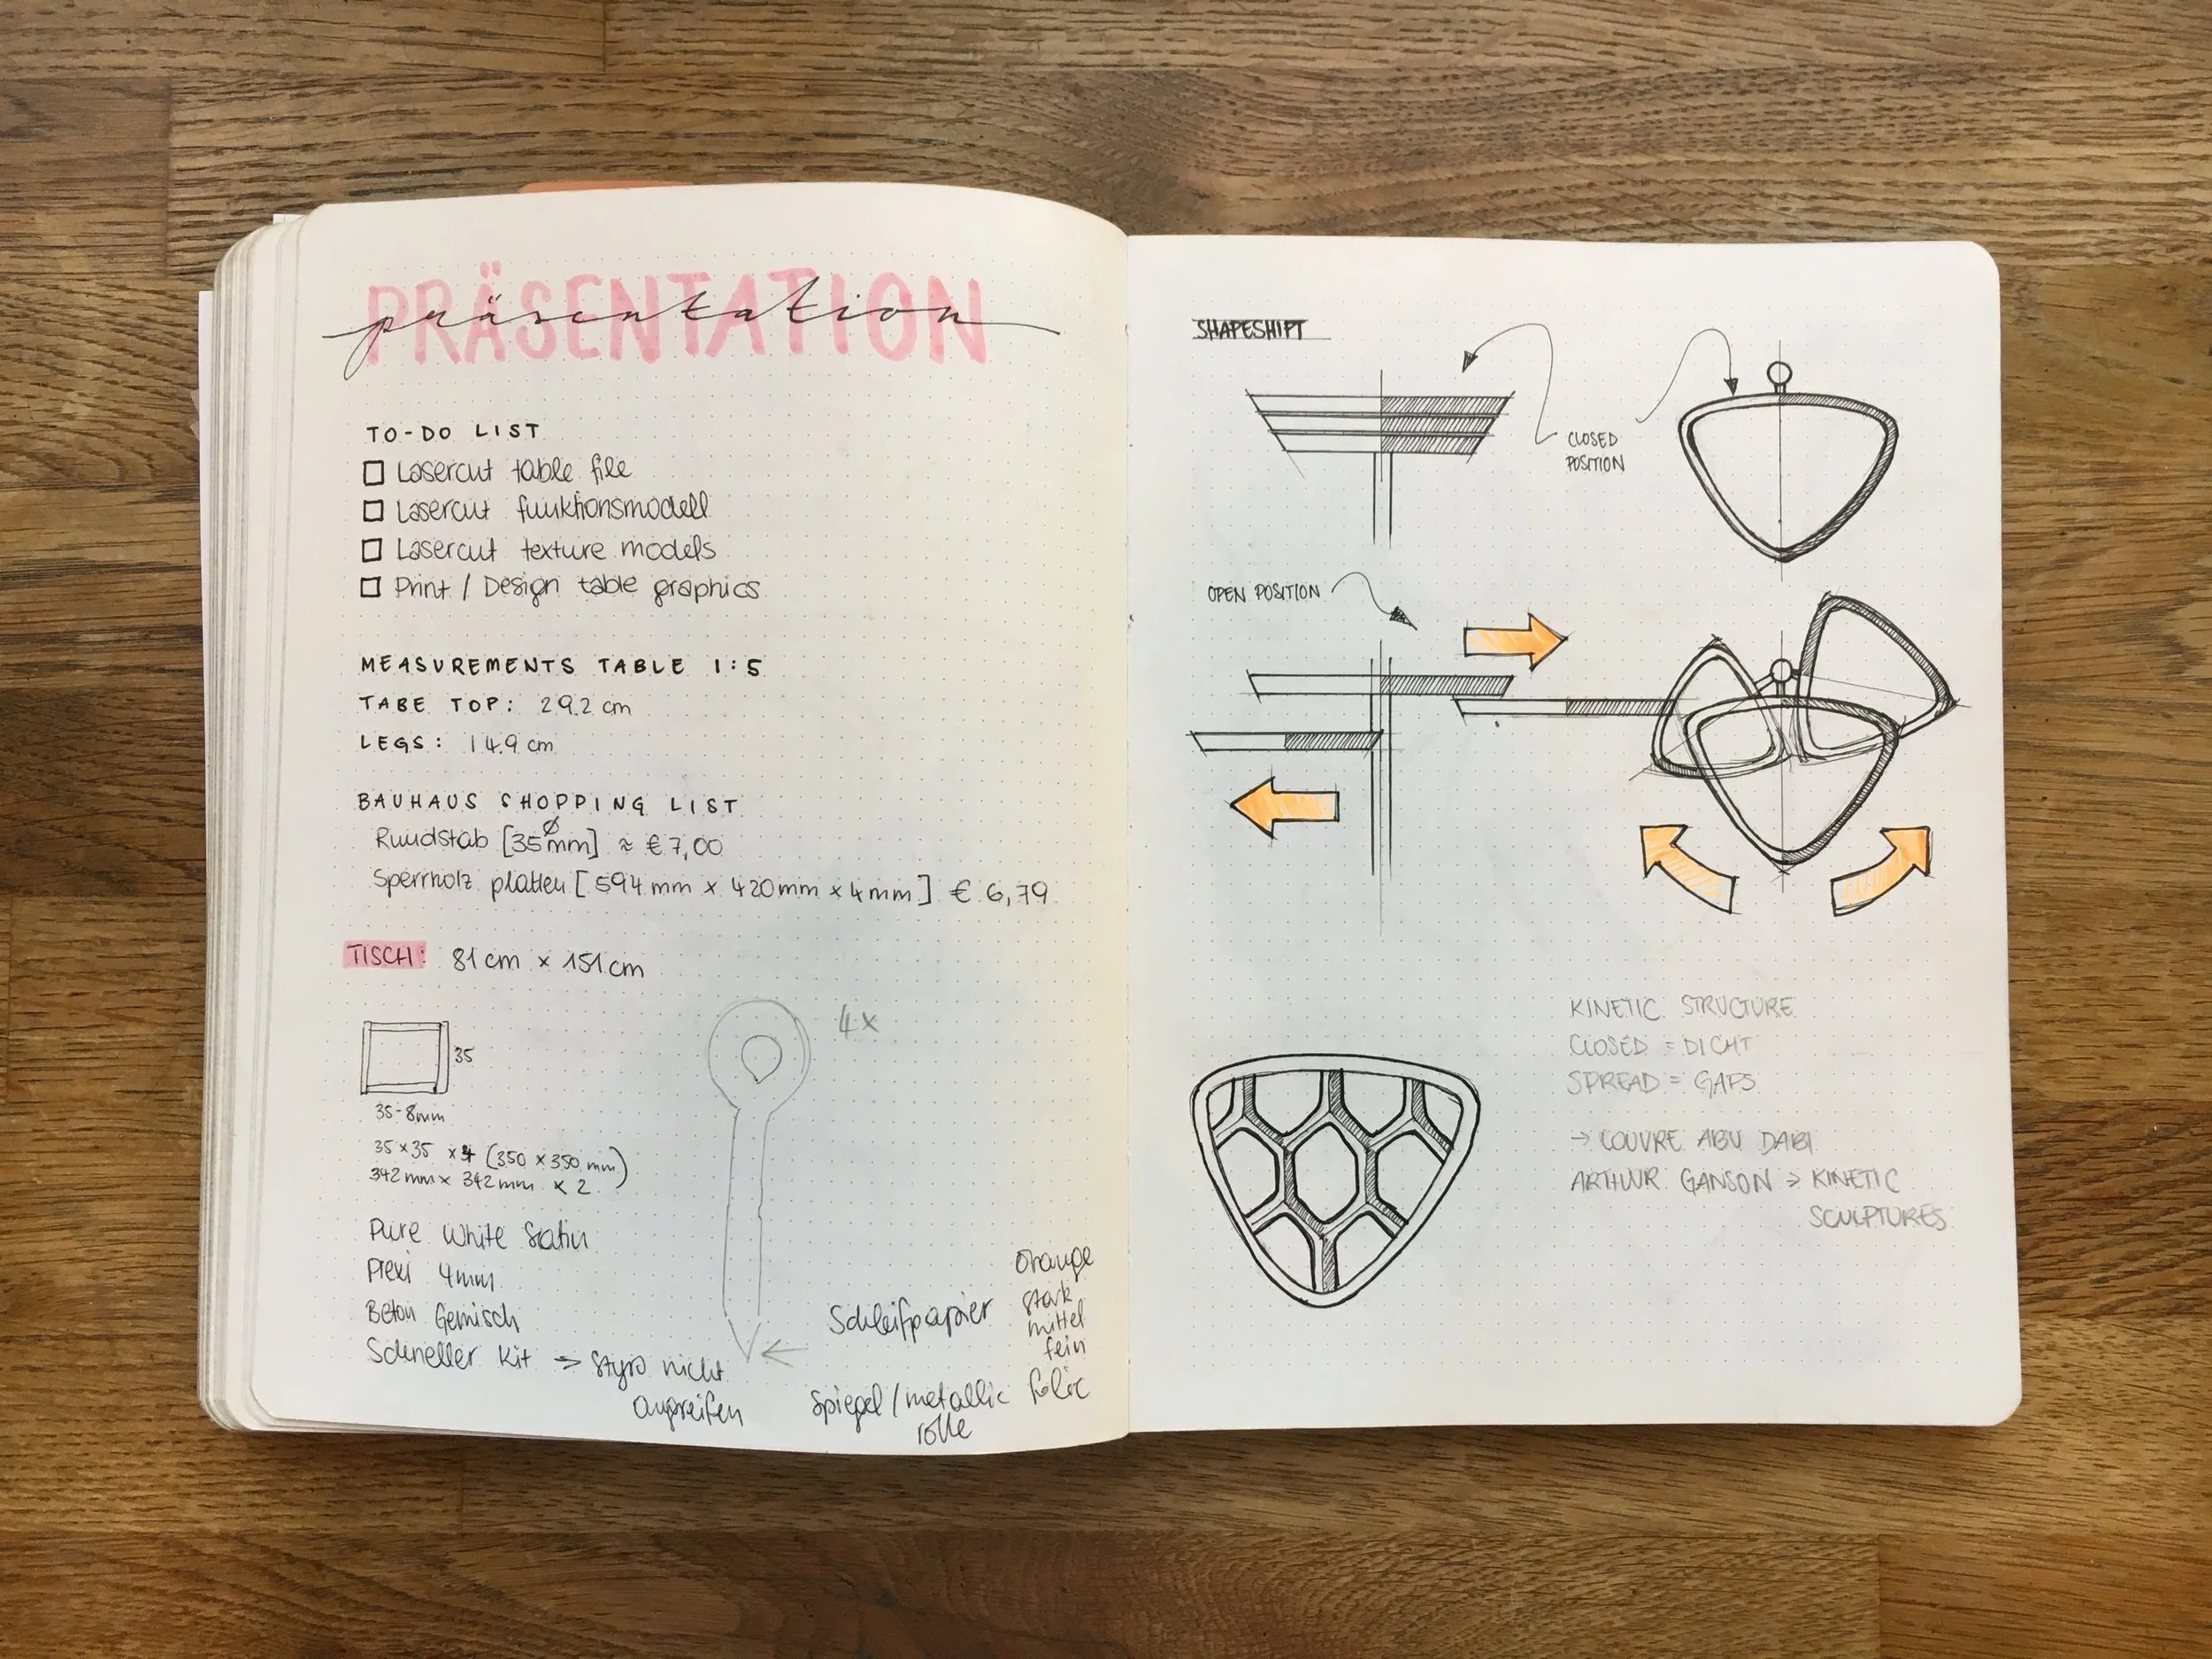 PRÄSENTATION
präsentation
TO-DO LIST
Lasercut table file
Lasercut funktionsmodell
Lasercut texture models
Print / Design table graphics
MEASUREMENTS TABLE 1:5
TABE TOP: 29.2 cm
LEGS: 14.9 cm
BAUHAUS SHOPPING LIST
Rundstab [35 Ø mm] ≈ € 7,00
Sperrholz platten [594 mm x 420 mm x 4 mm] € 6,79
TISCH: 81 cm x 151 cm
35
35-8mm
35 x 35 x 4 (350 x 350 mm)
342 mm x 342 mm x 2
4x
Pure White Satin
Plexi 4mm
Beton Gemisch
Schneller Kit → Styro nicht
angreifen
Schleifpapier
Orange
stark
mittel
fein
Spiegel / metallic folie
rolle
SHAPESHIFT
CLOSED
POSITION
OPEN POSITION
KINETIC STRUCTURE
CLOSED = DICHT
SPREAD = GAPS
→ LOUVRE ABU DABI
ARTHUR GANSON → KINETIC
SCULPTURES